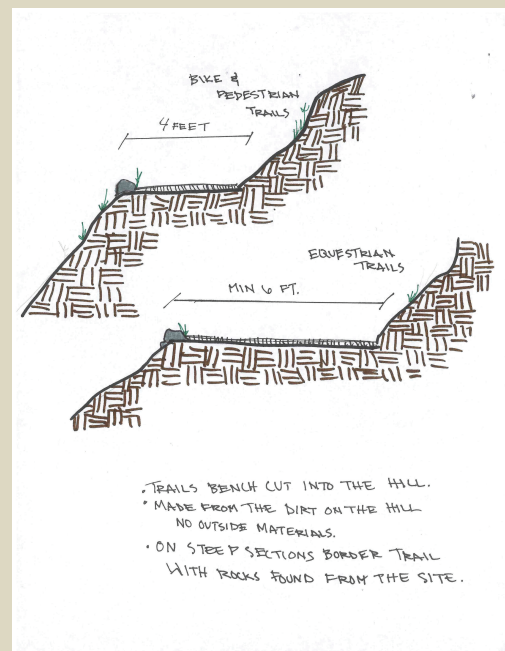 BIKE &
PEDESTRIAN
TRAILS
4 FEET
EQUESTRIAN
TRAILS
MIN 6 FT.
• TRAILS BENCH CUT INTO THE HILL.
• MADE FROM THE DIRT ON THE HILL
NO OUTSIDE MATERIALS.
• ON STEEP SECTIONS BORDER TRAIL
WITH ROCKS FOUND FROM THE SITE.